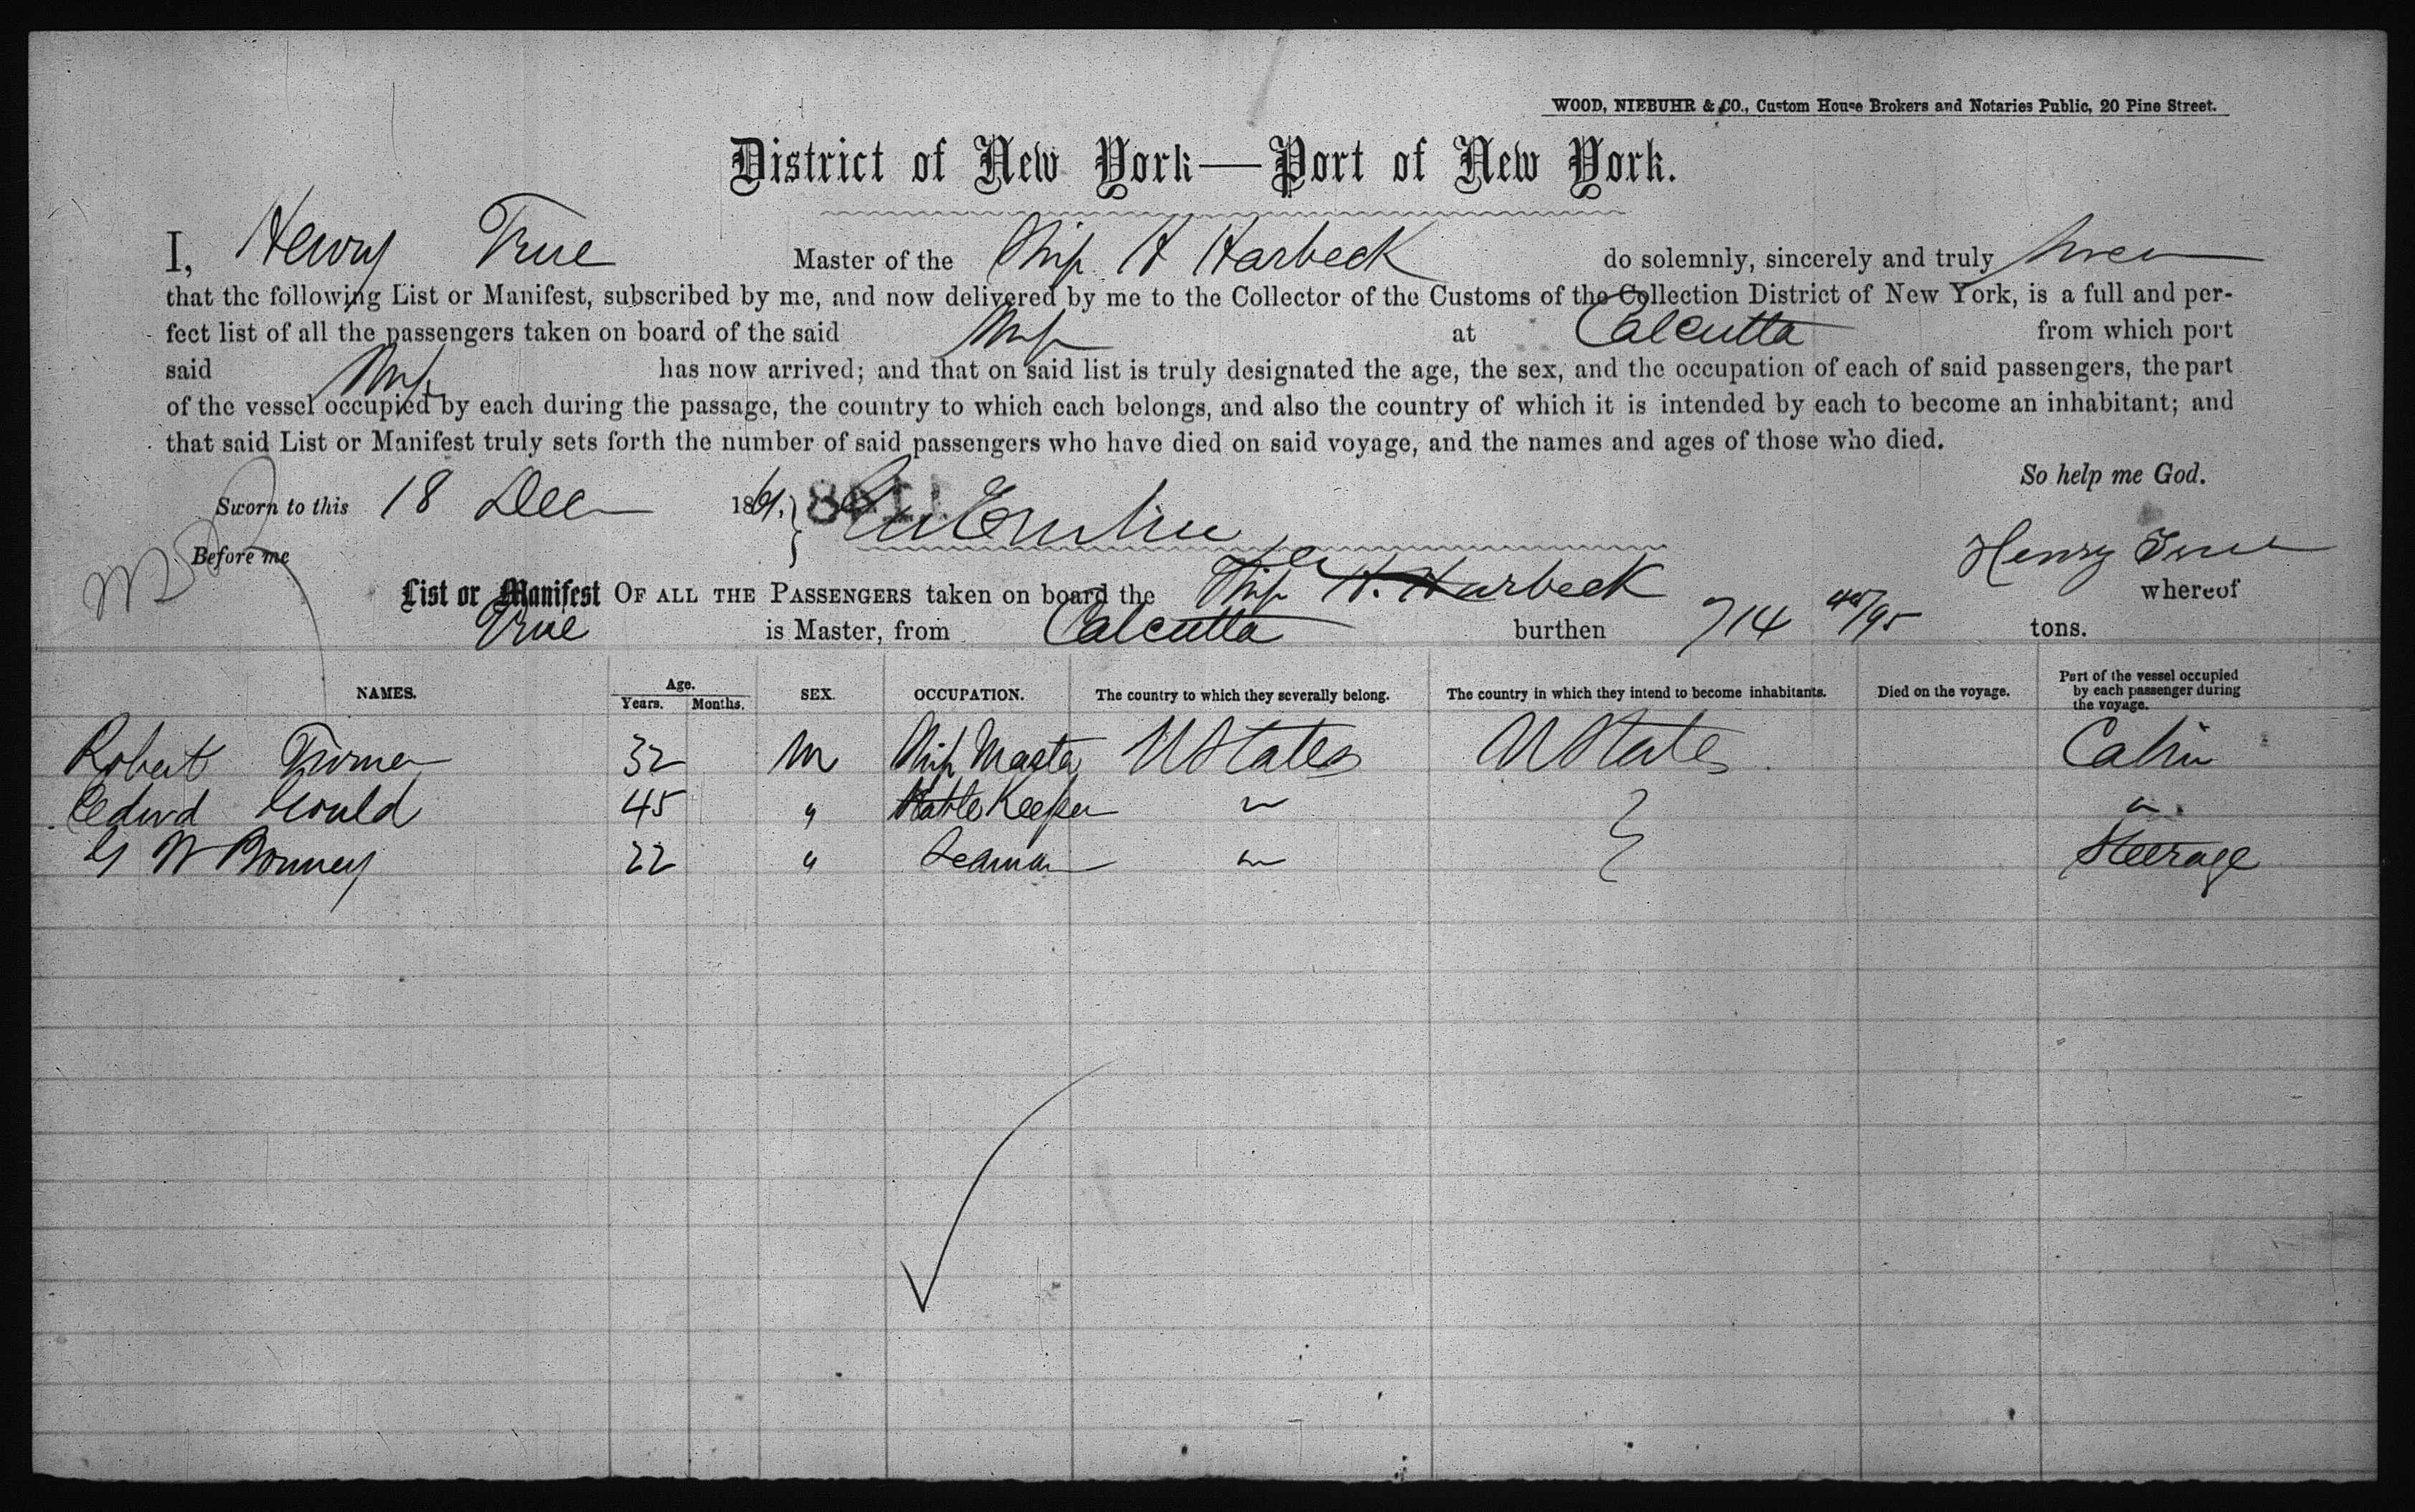 WOOD, NIEBUHR & CO., Custom House Brokers and Notaries Public, 20 Pine Street.
District of New York—Port of New York.
I, Henry True Master of the Ship H Harbeck do solemnly, sincerely and truly swear
that the following List or Manifest, subscribed by me, and now delivered by me to the Collector of the Customs of the Collection District of New York, is a full and per-
fect list of all the passengers taken on board of the said Ship at Calcutta from which port
said Ship has now arrived; and that on said list is truly designated the age, the sex, and the occupation of each of said passengers, the part
of the vessel occupied by each during the passage, the country to which each belongs, and also the country of which it is intended by each to become an inhabitant; and
that said List or Manifest truly sets forth the number of said passengers who have died on said voyage, and the names and ages of those who died.
So help me God.
Sworn to this 18 Dec 1861,
Before me Henry True
List or Manifest OF ALL THE PASSENGERS taken on board the Ship H. Harbeck whereof
True is Master, from Calcutta burthen 714 /95 tons.
NAMES. Age. Years. Months. SEX. OCCUPATION. The country to which they severally belong. The country in which they intend to become inhabitants. Died on the voyage. Part of the vessel occupied by each passenger during the voyage.
Robert 32 M Ship Master UStates UStates Cabin
Edwd Gould 45 " Stable Keeper " "
G W Bonney 22 " Seaman " Steerage